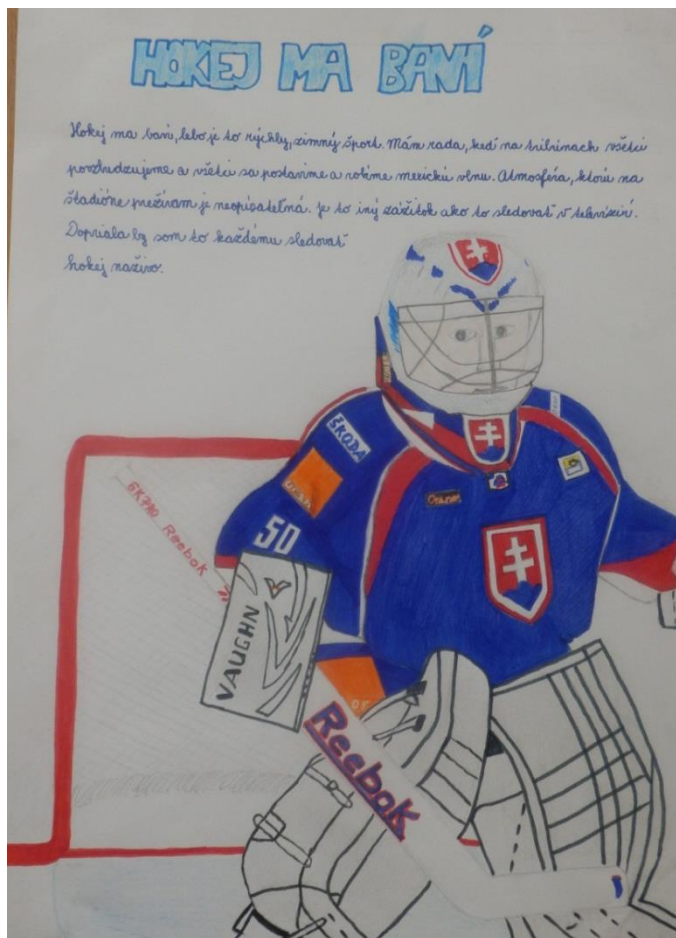 HOKEJ MA BAVÍ
Hokej ma baví, lebo je to rýchly, zimný šport. Mám rada, keď na tribúnach všetci
povzbudzujeme a všetci sa postavíme a robíme mexickú vlnu. Atmosféra, ktorú na
štadióne prežívam je neopísateľná. Je to iný zážitok ako to sledovať v televízií.
Dopriala by som to každému sledovať
hokej naživo.
ŠKODA
6K790 Reebok
Orange
50
VAUGHN
Reebok